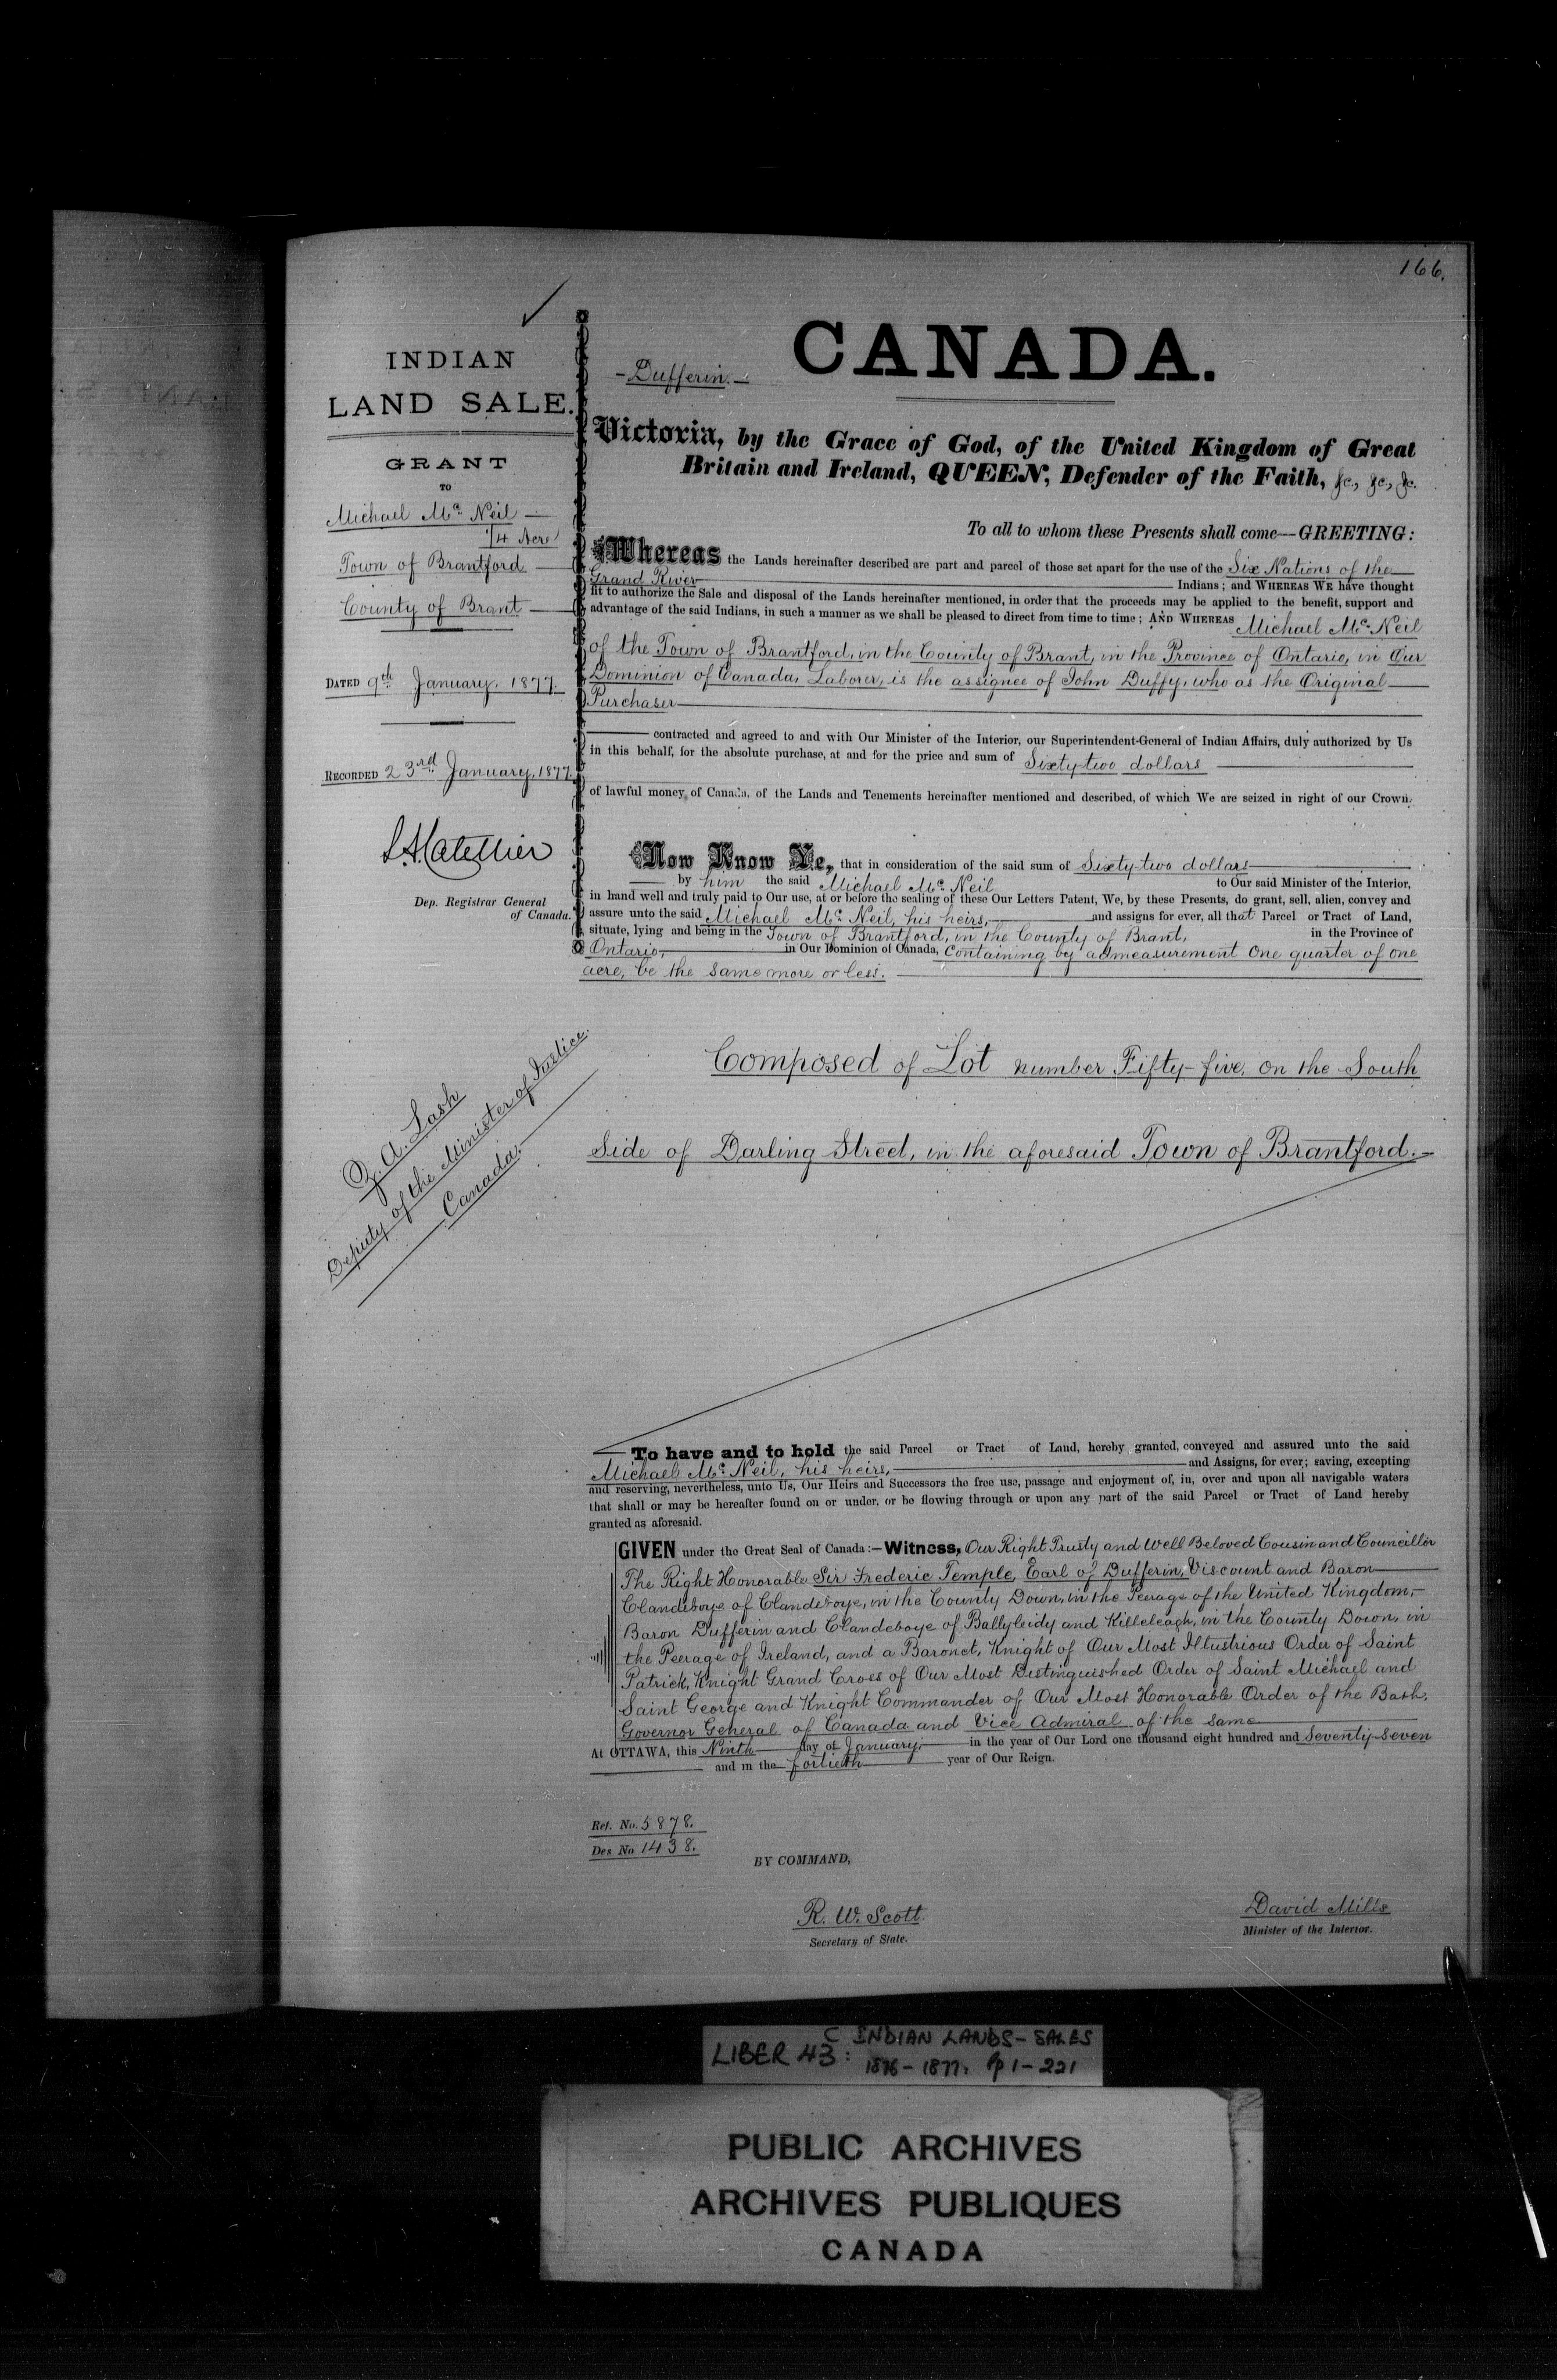 166.
INDIAN
LAND SALE.
GRANT
TO
Michael Mc Neil
1/4 Acre
Town of Brantford
County of Brant
DATED 9th January, 1877.
RECORDED 23rd January, 1877.
Dep. Registrar General
of Canada.
Z. A. Lash
Deputy of the Minister of Justice
Canada.
-Dufferin.-
CANADA.
Victoria, by the Grace of God, of the United Kingdom of Great
Britain and Ireland, QUEEN, Defender of the Faith, &c., &c., &c.
To all to whom these Presents shall come—GREETING:
Whereas the Lands hereinafter described are part and parcel of those set apart for the use of the Six Nations of the
Grand River Indians; and WHEREAS WE have thought
fit to authorize the Sale and disposal of the Lands hereinafter mentioned, in order that the proceeds may be applied to the benefit, support and
advantage of the said Indians, in such a manner as we shall be pleased to direct from time to time; AND WHEREAS Michael Mc Neil
of the Town of Brantford, in the County of Brant, in the Province of Ontario, in Our
Dominion of Canada, Laborer, is the assignee of John Duffy, who as the Original
Purchaser
contracted and agreed to and with Our Minister of the Interior, our Superintendent-General of Indian Affairs, duly authorized by Us
in this behalf, for the absolute purchase, at and for the price and sum of Sixty-two dollars
of lawful money of Canada, of the Lands and Tenements hereinafter mentioned and described, of which We are seized in right of our Crown.
Now Know Ye, that in consideration of the said sum of Sixty-two dollars
by him the said Michael Mc Neil to Our said Minister of the Interior,
in hand well and truly paid to Our use, at or before the sealing of these Our Letters Patent, We, by these Presents, do grant, sell, alien, convey and
assure unto the said Michael Mc Neil, his heirs, and assigns for ever, all that Parcel or Tract of Land,
situate, lying and being in the Town of Brantford, in the County of Brant, in the Province of
Ontario, in Our Dominion of Canada, Containing by admeasurement One quarter of one
acre, be the same more or less.
Composed of Lot number Fifty-five, on the South
Side of Darling Street, in the aforesaid Town of Brantford.-
To have and to hold the said Parcel or Tract of Land, hereby granted, conveyed and assured unto the said
Michael Mc Neil, his heirs, and Assigns, for ever; saving, excepting
and reserving, nevertheless, unto Us, Our Heirs and Successors the free use, passage and enjoyment of, in, over and upon all navigable waters
that shall or may be hereafter found on or under, or be flowing through or upon any part of the said Parcel or Tract of Land hereby
granted as aforesaid.
GIVEN under the Great Seal of Canada:—Witness, Our Right Trusty and Well Beloved Cousin and Councillor
The Right Honorable Sir Frederic Temple, Earl of Dufferin, Viscount and Baron
Clandeboye of Clandeboye, in the County Down, in the Peerage of the United Kingdom,-
Baron Dufferin and Clandeboye of Ballyleidy and Killeleagh, in the County Down, in
the Peerage of Ireland, and a Baronet, Knight of Our Most Illustrious Order of Saint
Patrick, Knight Grand Cross of Our Most Distinguished Order of Saint Michael and
Saint George and Knight Commander of Our Most Honorable Order of the Bath.
Governor General of Canada and Vice Admiral of the same
At OTTAWA, this Ninth day of January, in the year of Our Lord one thousand eight hundred and Seventy-Seven
and in the fortieth year of Our Reign.
Ref. No. 5878.
Des No 1438.
BY COMMAND,
R. W. Scott.
Secretary of State.
David Mills
Minister of the Interior.
LIBER 43: C INDIAN LANDS-SALES
1876-1877. Pp 1-221
PUBLIC ARCHIVES
ARCHIVES PUBLIQUES
CANADA